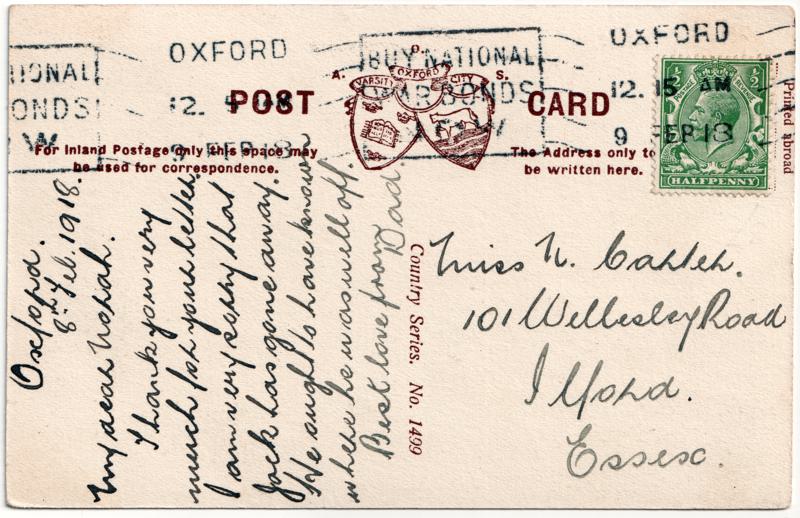 OXFORD
12. 15 AM
9 FEP 18
BUY NATIONAL
WAR BONDS
NOW
OXFORD
12. 15 AM
9 FEP 18
NATIONAL
BONDS
W
POST CARD
A. O. S.
VARSITY OXFORD CITY
For Inland Postage only this space may
be used for correspondence.
The Address only to
be written here.
HALFPENNY
Printed abroad
Country Series. No. 1499
Oxford.
8th Feb. 1918.
My dear Norah.
Thank you very
much for your letter
I am very sorry that
Jack has gone away.
He ought to have known
where he was well off.
Best love from
Dad
Miss N. Carter.
101 Wellesley Road
Ilford.
Essex.